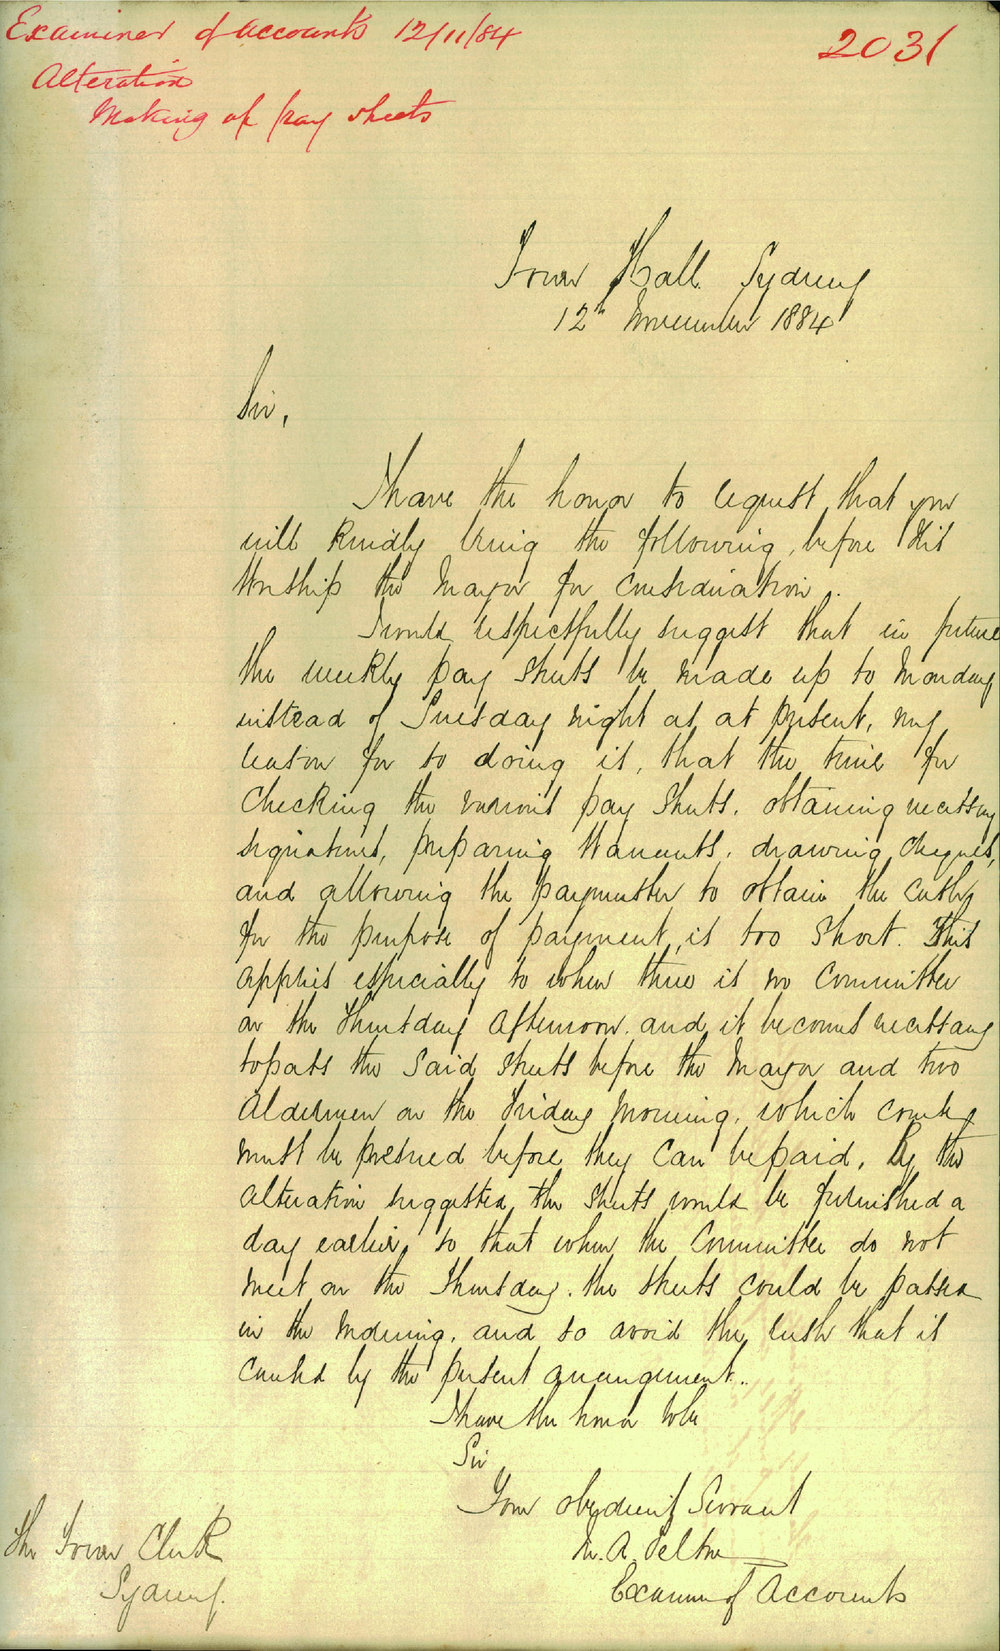 Examiner of accounts 12/11/84
2031
Alteration
Making of pay sheets
Town Hall Sydney
12th November 1884
Sir,
I have the honor to request that you
will kindly bring the following, before His
Worship the Mayor for consideration.
I would respectfully suggest that in future
the weekly pay sheets be made up to Monday
instead of Tuesday night as at present, my
reason for so doing is, that the time for
checking the various pay sheets, obtaining necessary
signatures, preparing Warrants, drawing cheques,
and allowing the paymaster to obtain the cash
for the purpose of payment, is too short. This
applies especially to when there is no Committee
on the Thursday afternoon, and it becomes necessary
to pass the said sheets before the Mayor and two
Aldermen on the Friday morning, which course
must be pursued before they can be paid. By the
alteration suggested, the sheets would be furnished a
day earlier, so that when the Committee do not
meet on the Thursday, the sheets could be passed
in the morning, and so avoid the rush that is
caused by the present arrangement.
I have the honor to be
Sir
Your obedient Servant
Examiner of Accounts
The Town Clerk
Sydney.